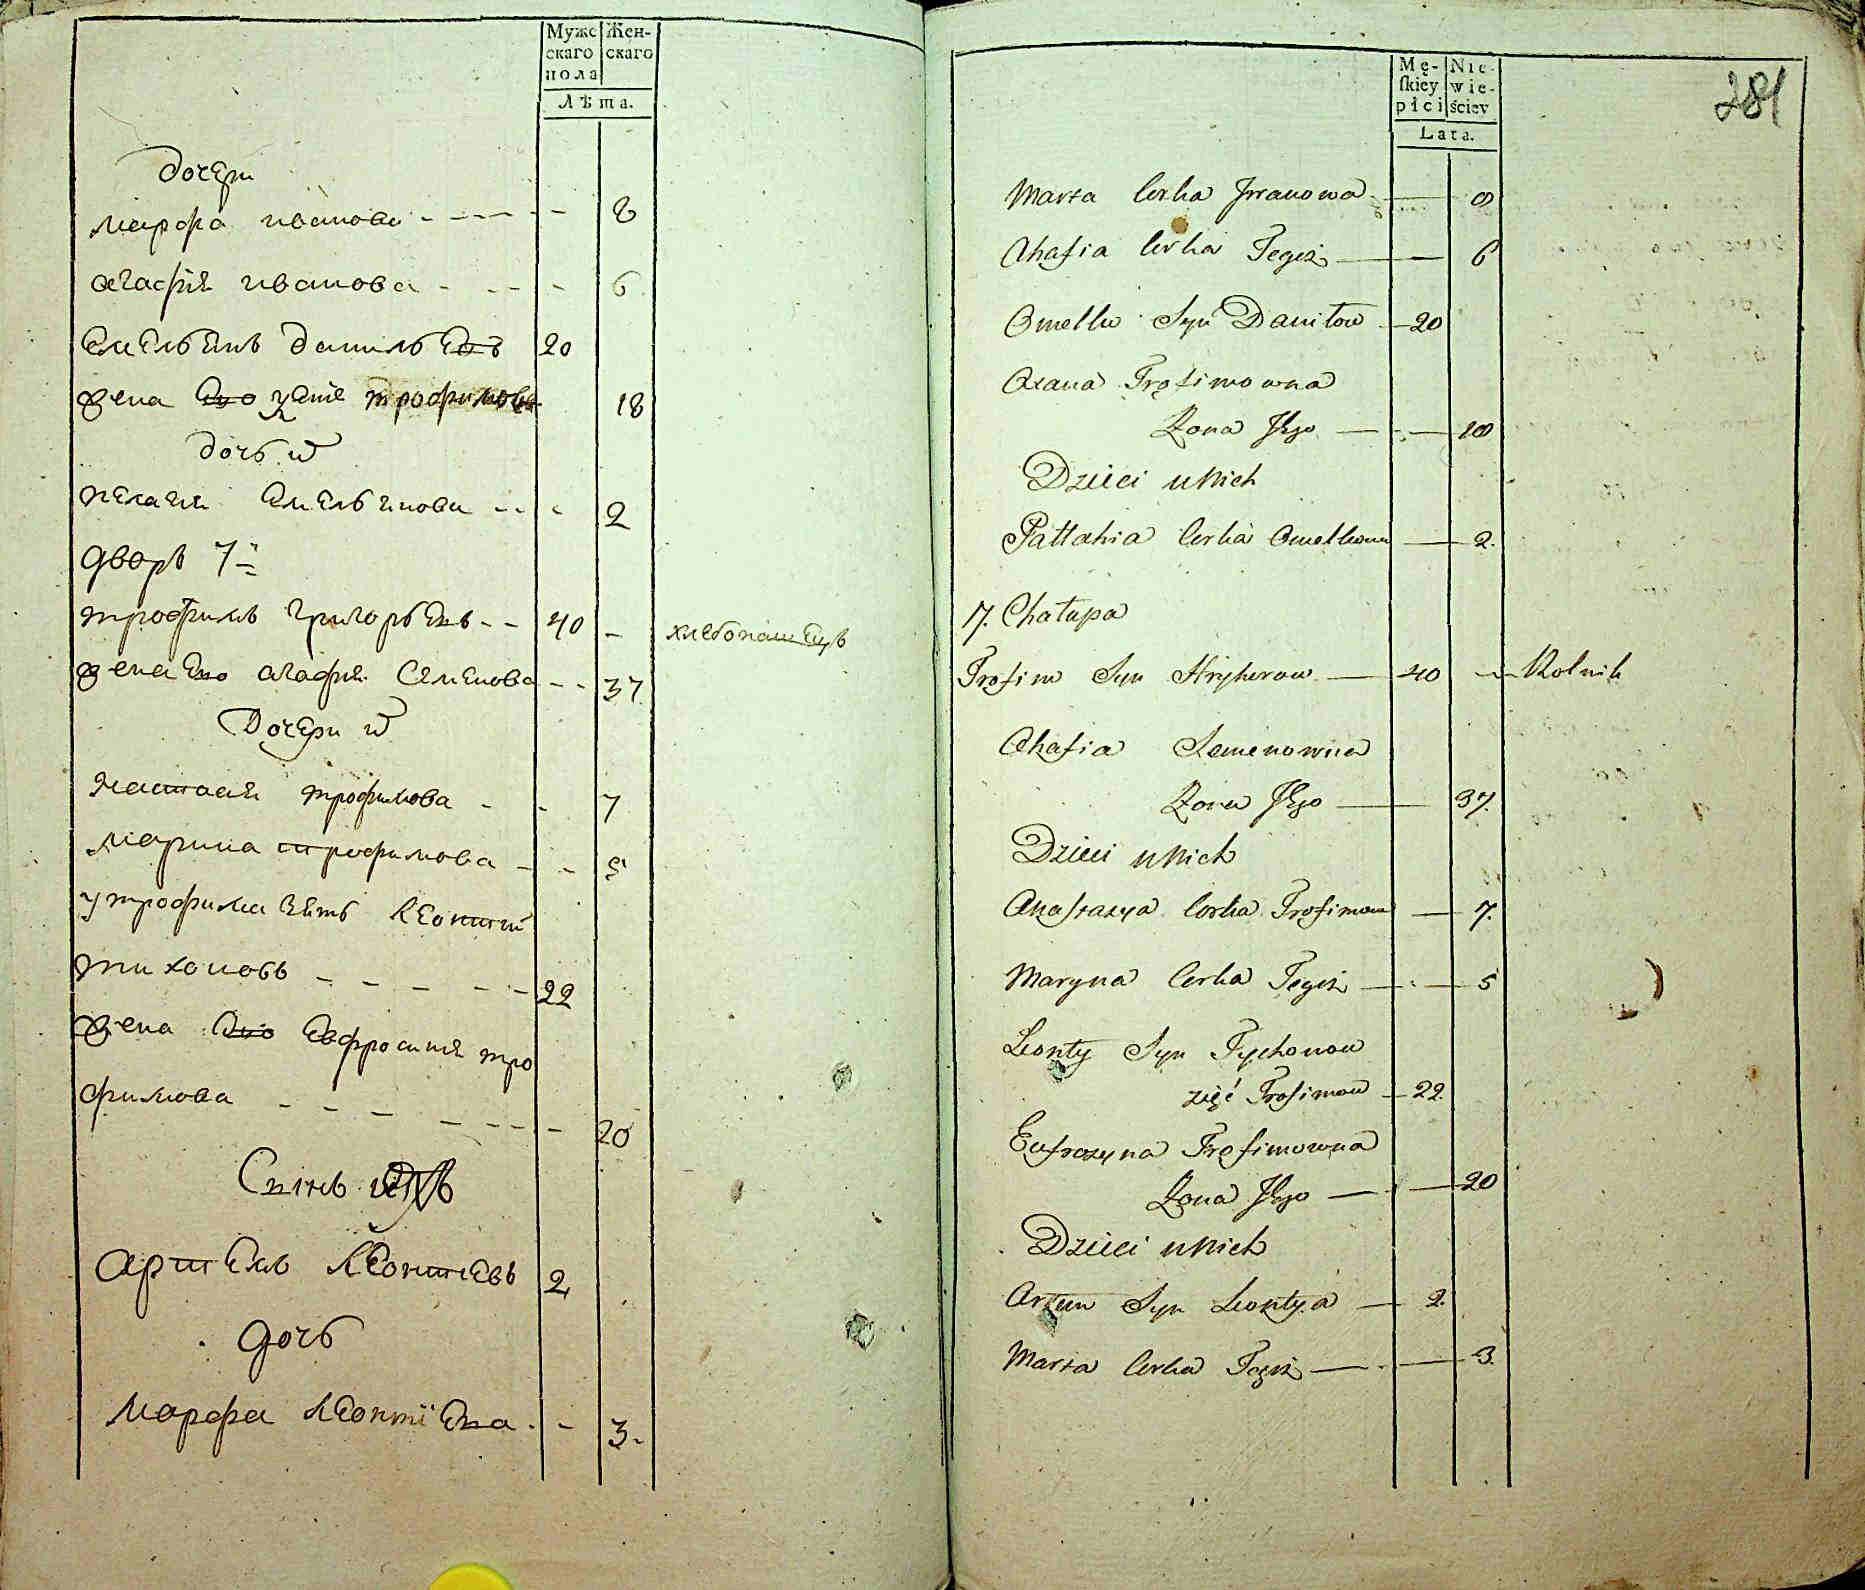 Муже
скаго
пола
Жен-
скаго
Лѣта.
дочери
марфа иванова - - - - - - 8
агафія иванова - - - - 6
Емельянъ данильевъ 20
жена Ево трофимова 18
дочь
пелагия Емельянова - - - 2
дворъ 7й
трофимъ григорьевъ - - 40 - хлебопашецъ
жена Ево агафия Семенова - - 37
Дочери
настасия трофимова - - 7
марина трофимова - - 5
у трофима зять леонтий
тихоновъ - - - - - 22
жена Ево Евфросиния тро
фимова - - - - - - - 20
Сынъ
артемъ леонтиевъ 2
дочь
марфа леонтїева - - 3.
Mę-
skiey
płci
Nie-
wie-
ściey
Lata.
281
Marta Corka Jwanowa — 8
Ahafia Corka Tegoż — 6
Omelko Syn Daniłow — 20
Oxana Trofimowna
Żona Jego — 18
Dzieci u Nich
Pałłahia Corka Omelkowa — 2.
7. Chałupa
Trofim Syn Hryhorow — 40 — Rolnik
Ahafia Semenowna
Żona Jego — 37.
Dzieci u Nich
Anastazya Corka Trofimow — 7.
Maryna Corka Tegoż — 5
Leonty Syn Tychonow
zięć Trofimow — 22.
Eufrozyna Trofimowna
Żona Jego — 20
Dzieci u Nich
Artem Syn Leontya — 2.
Marta Corka Tegoż — 3.